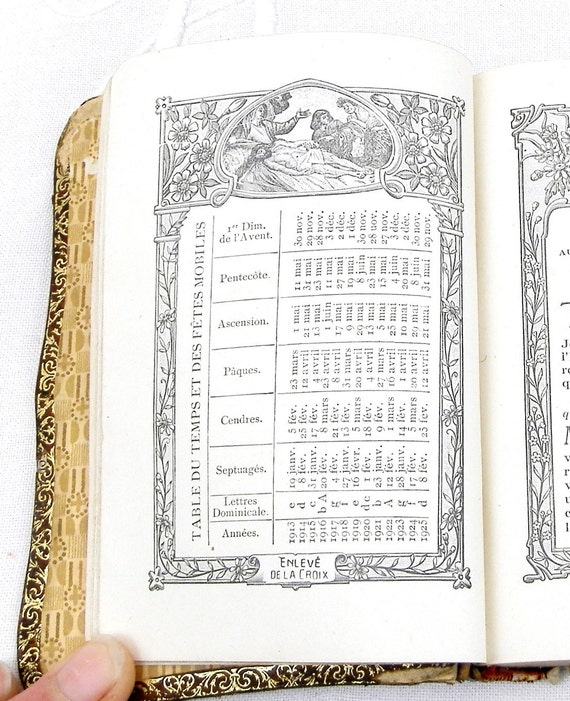 TABLE DU TEMPS ET DES FÊTES MOBILES
Années. Lettres Dominicale. Septuagés. Cendres. Pâques. Ascension. Pentecôte. 1er Dim. de l'Avent.
1913 e 19 janv. 5 fév. 23 mars 1 mai 11 mai 30 nov.
1914 d 8 fév. 25 fév. 12 avril 21 mai 31 mai 29 nov.
1915 c 31 janv. 17 fév. 4 avril 13 mai 23 mai 28 nov.
1916 b A 20 fév. 8 mars 23 avril 1 juin 11 mai 3 déc.
1917 g 4 fév. 21 fév. 8 avril 17 mai 27 mai 2 déc.
1918 f 27 janv. 13 fév. 31 mars 9 mai 19 mai 1 déc.
1919 e 16 févr. 5 mars 20 avril 29 mai 8 juin 30 nov.
1920 d c 1 fév. 18 fév. 4 avril 13 mai 23 mai 28 nov.
1921 b 23 janv. 9 fév. 27 mars 5 mai 15 mai 27 nov.
1922 A 12 fév. 1 mars 16 avril 25 mai 4 juin 3 déc.
1923 g 28 janv. 14 fév. 1 avril 10 mai 20 mai 2 déc.
1924 f 17 fév. 5 mars 20 avril 29 mai 8 juin 30 nov.
1925 d 8 fév. 25 fév. 12 avril 21 mai 31 mai 29 nov.
ENLEVÉ
DE LA CROIX
AU